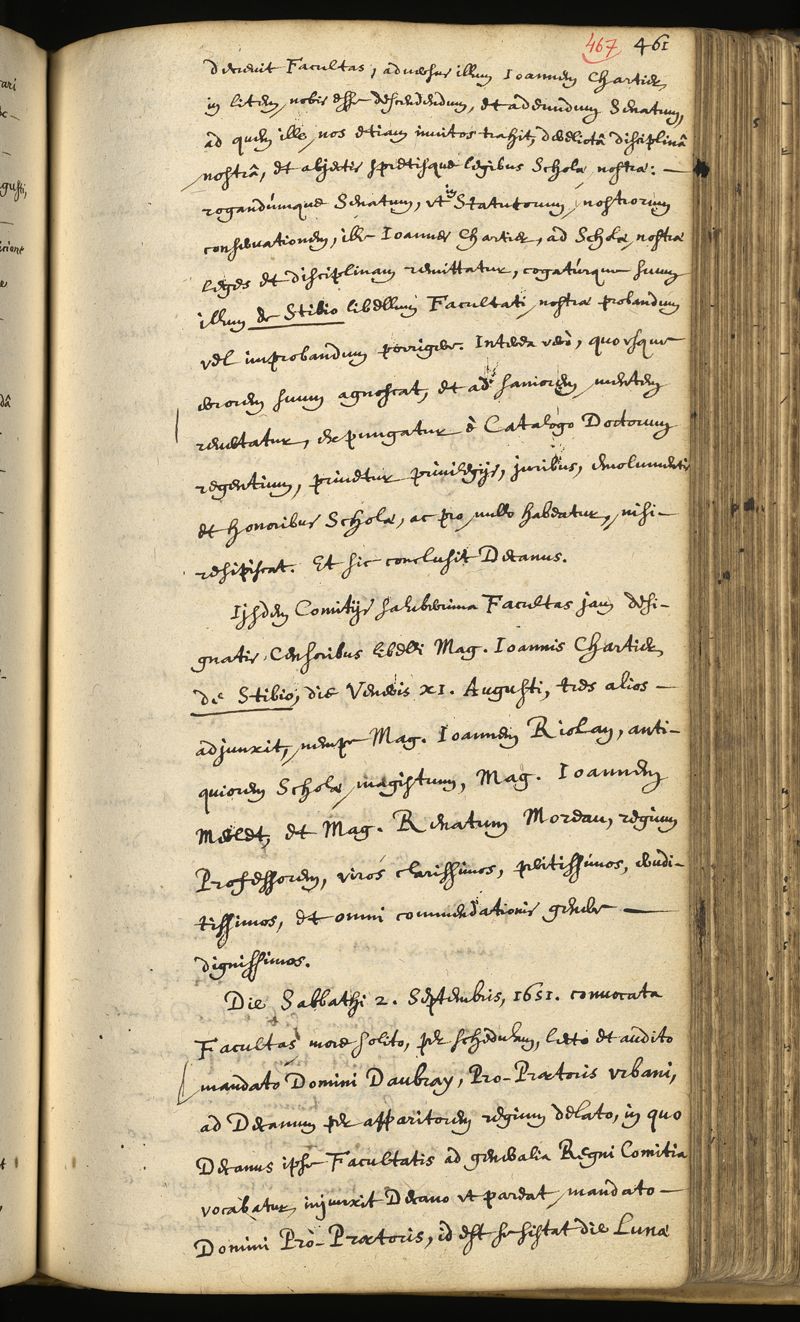 467 461
decrevit Facultas, adversus illum Ioannem Chartier,
in litem, nobis esse descendendum, et adeundum Senatum,
ad quem ille, nos etiam invitos trahit, derelictâ disciplinâ
nostrâ, et abjectis spretisque legibus Scholæ nostræ: —
rogandúmque Senatum, vt in Statutorum nostrorum
conservationem, ille Ioannes Chartier, ad Scholæ nostræ
leges et disciplinam remittatur, cogatúrque suum
illum de Stibio libellum Facultati nostræ probandum
vel improbandum porrigere. Interea verò, quo vsque
errorem suum agnoscat, et ad saniorem mentem
revertatur, expungatur è Catalogo Doctorum
regentium, privetur privilegijs, juribus, emolumentis
et honoribus Scholæ, ac pro nullo habeatur, nisi —
resipiscat. Et sic conclusit Decanus.
Ijsdem Comitijs saluberrima Facultas jam desi-
gnatis Censoribus libelli Mag. Ioannis Chartier,
de Stibio, die Veneris XI. Augusti, tres alios —
adjunxit, nempe Mag. Ioannem Riolan, anti-
quiorem Scholæ magistrum, Mag. Ioannem
Merlet, et Mag. Renatum Moreau, regium
Professorem, viros clarissimos, peritissimos, erudi-
tissimos, et omni commendationis genere —
dignissimos.
Die Sabbathi 2. Septembris, 1651. convocata
Facultas more solito, per schedulam, lecto et audito
mandato Domini Daubray, Pro-Prætoris vrbani,
ad Decanum per apparitorem regium delato, in quo
Decanus ipse Facultatis ad generalia Regni Comitia
vocabatur, injunxit Decano vt pareat mandato —
Domini Prò-Prætoris, id est se sistat die Lunæ